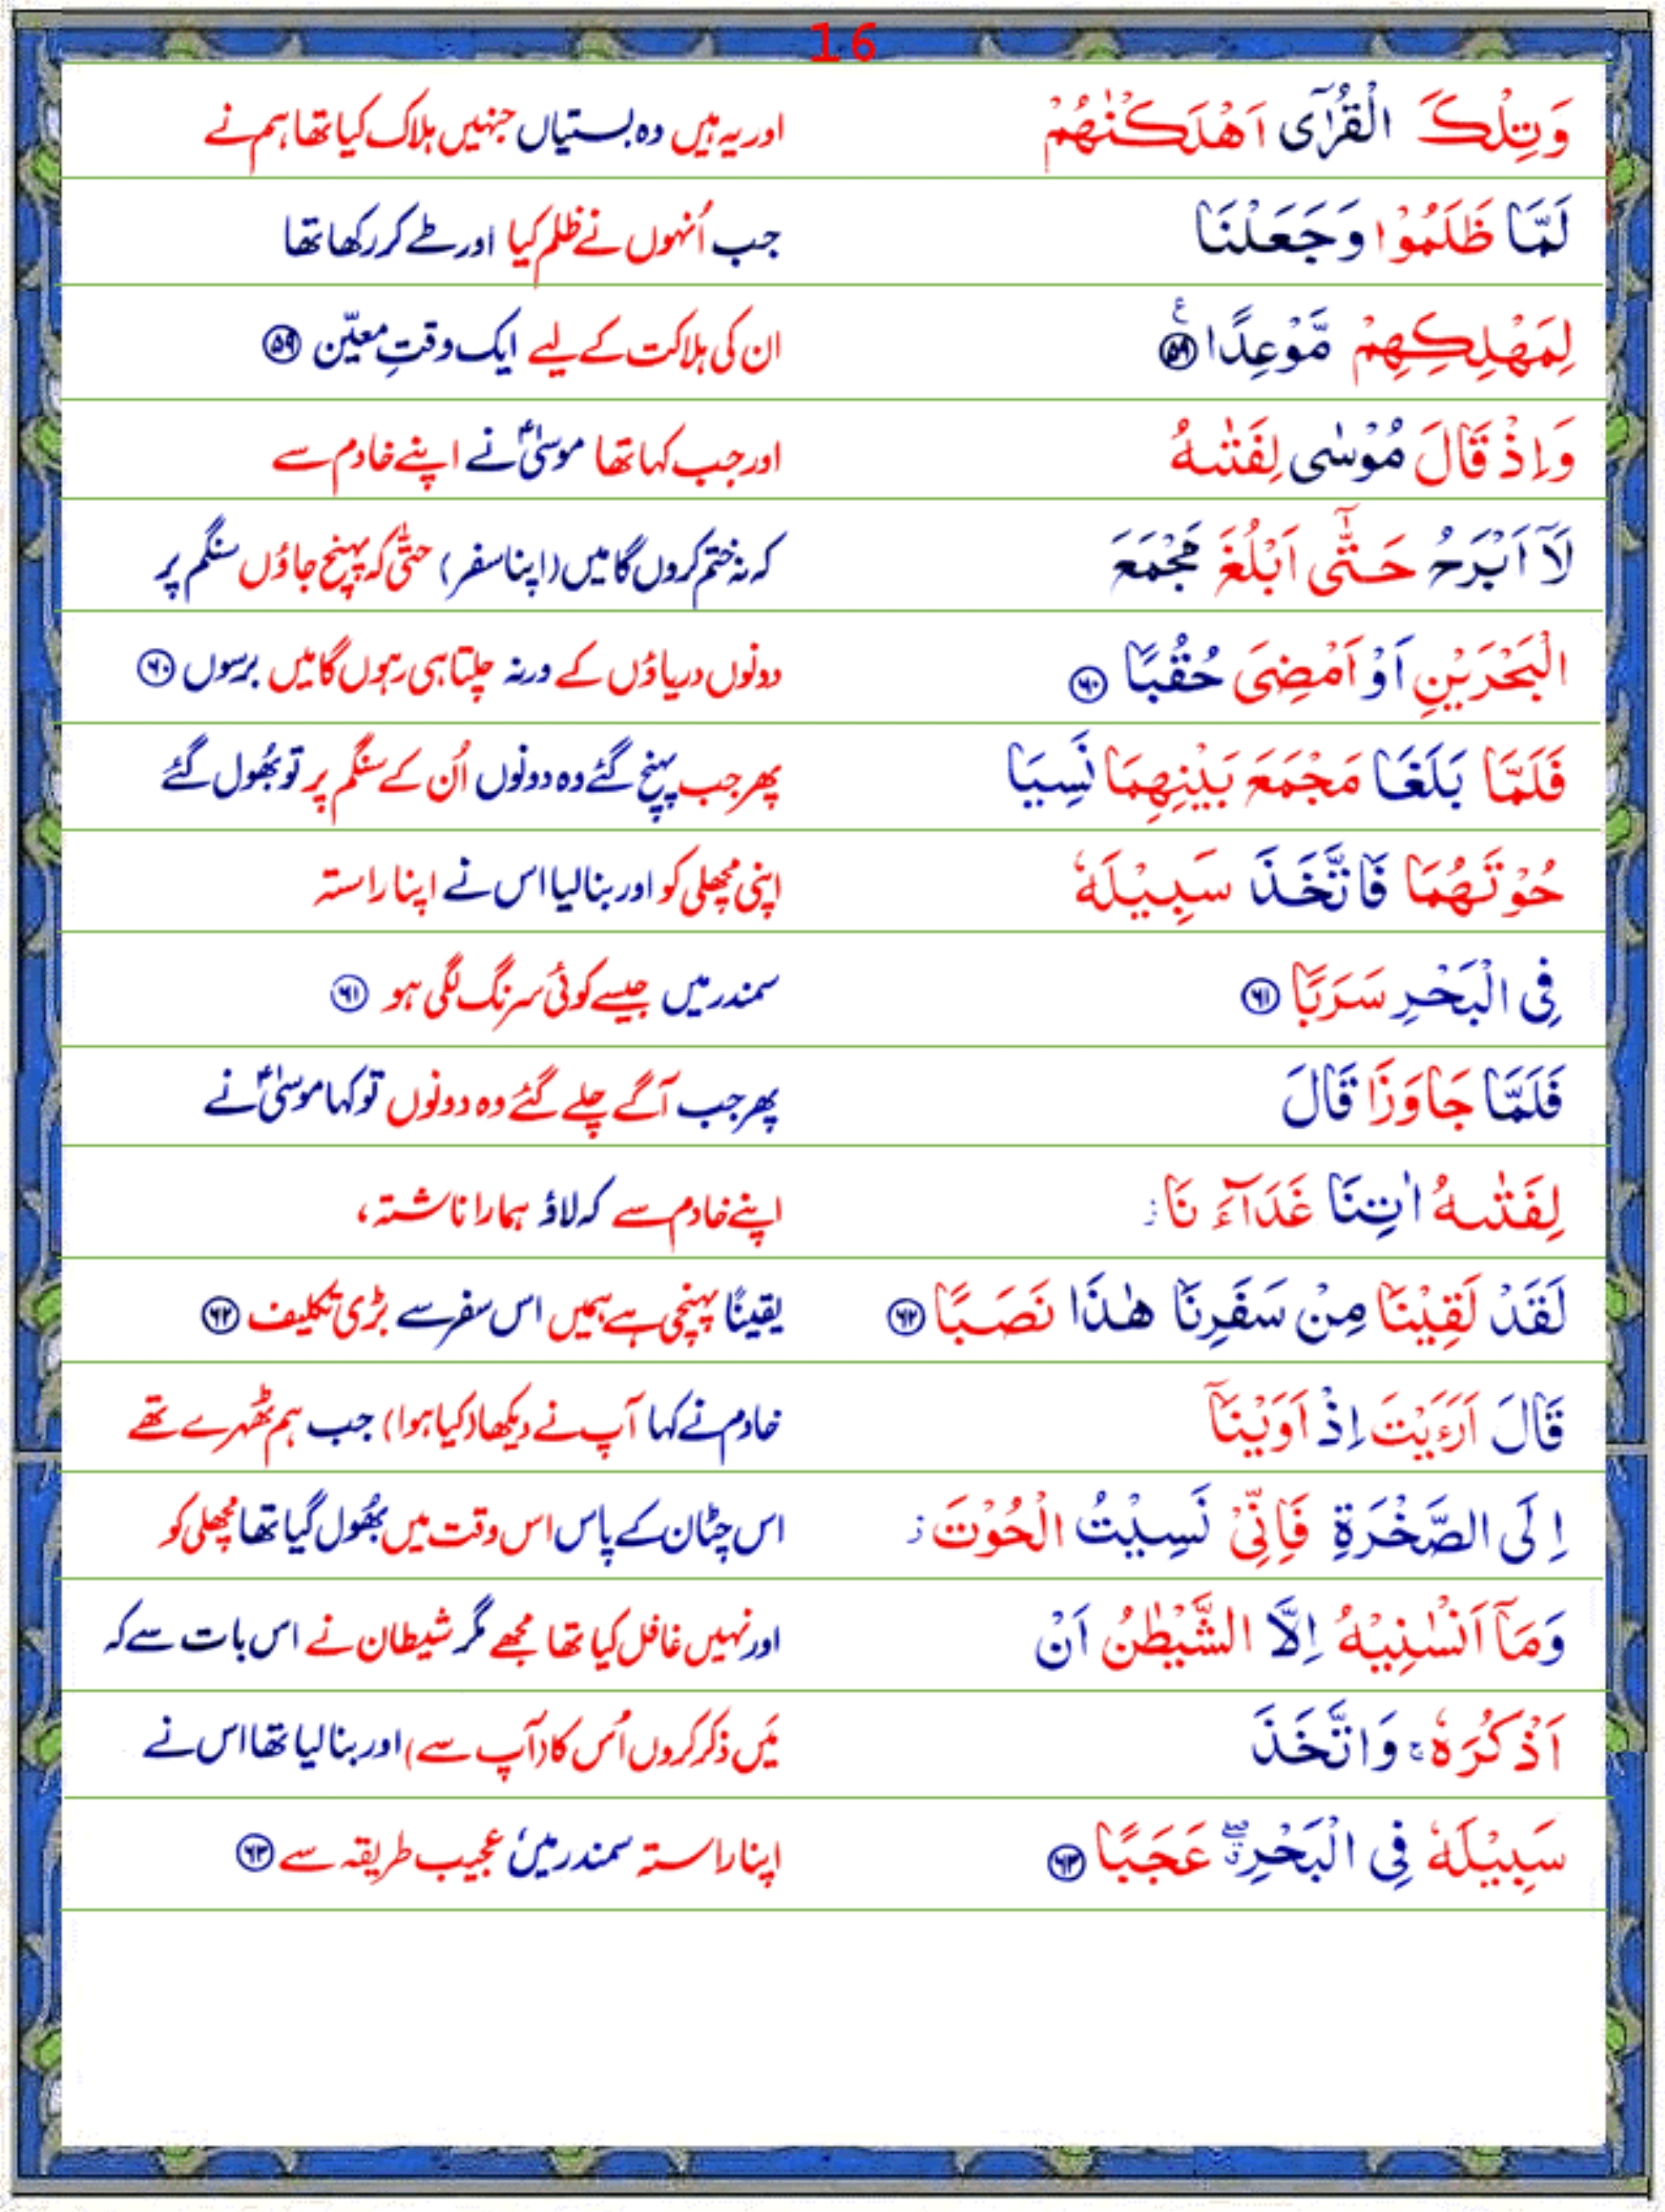 16
وَتِلْكَ الْقُرٰٓى اَهْلَكْنٰهُمْ اور یہ ہیں وہ بستیاں جنہیں ہلاک کیا تھا ہم نے
لَمَّا ظَلَمُوْا وَجَعَلْنَا جب اُنہوں نے ظلم کیا اور طے کر رکھا تھا
لِمَهْلِكِهِمْ مَّوْعِدًا ۵۹ ع ان کی ہلاکت کے لیے ایک وقتِ معیّن ۵۹
وَاِذْ قَالَ مُوْسٰى لِفَتٰىهُ اور جب کہا تھا موسٰیؑ نے اپنے خادم سے
لَاۤ اَبْرَحُ حَتّٰۤى اَبْلُغَ مَجْمَعَ کہ نہ ختم کروں گا میں (اپنا سفر) حتّٰی کہ پہنچ جاؤں سنگم پر
الْبَحْرَيْنِ اَوْ اَمْضِىَ حُقُبًا ۶۰ دونوں دریاؤں کے ورنہ چلتا ہی رہوں گا میں برسوں ۶۰
فَلَمَّا بَلَغَا مَجْمَعَ بَيْنِهِمَا نَسِيَا پھر جب پہنچ گئے وہ دونوں اُن کے سنگم پر تو بھُول گئے
حُوْتَهُمَا فَاتَّخَذَ سَبِيْلَهٗ اپنی مچھلی کو اور بنا لیا اس نے اپنا راستہ
فِى الْبَحْرِ سَرَبًا ۶۱ سمندر میں جیسے کوئی سرنگ لگی ہو ۶۱
فَلَمَّا جَاوَزَا قَالَ پھر جب آگے چلے گئے وہ دونوں تو کہا موسٰیؑ نے
لِفَتٰىهُ اٰتِنَا غَدَآءَنَا ز اپنے خادم سے کہ لاؤ ہمارا ناشتہ،
لَقَدْ لَقِيْنَا مِنْ سَفَرِنَا هٰذَا نَصَبًا ۶۲ یقینًا پہنچی ہے ہمیں اس سفر سے بڑی تکلیف ۶۲
قَالَ اَرَءَيْتَ اِذْ اَوَيْنَاۤ خادم نے کہا آپ نے دیکھا (کیا ہوا) جب ہم ٹھہرے تھے
اِلَى الصَّخْرَةِ فَاِنِّىْ نَسِيْتُ الْحُوْتَ ز اس چٹان کے پاس اس وقت میں بھُول گیا تھا مچھلی کو
وَمَاۤ اَنْسٰنِيْهُ اِلَّا الشَّيْطٰنُ اَنْ اور نہیں غافل کیا تھا مجھے مگر شیطان نے اس بات سے کہ
اَذْكُرَهٗ ج وَاتَّخَذَ مَیں ذکر کروں اُس کا (آپ سے) اور بنا لیا تھا اس نے
سَبِيْلَهٗ فِى الْبَحْرِ ۖ ق عَجَبًا ۶۳ اپنا راستہ سمندر میں، عجیب طریقہ سے ۶۳